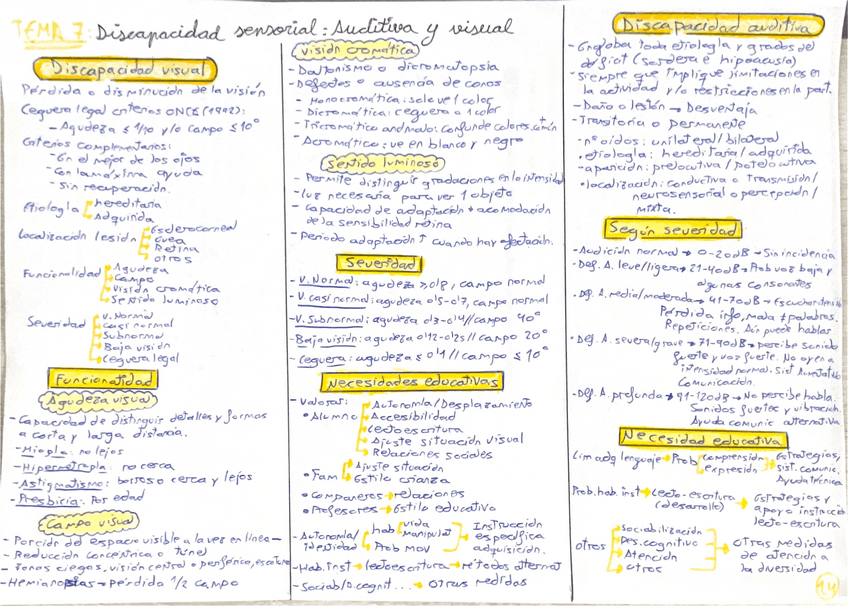 TEMA 7: Discapacidad sensorial: Auditiva y visual
Discapacidad visual
Pérdida o disminución de la visión
Ceguera legal criterios ONCE (1992):
- Agudeza ≤ 1/10 y/o campo ≤ 10°
Criterios complementarios:
- En el mejor de los ojos
- Con la máxima ayuda
- Sin recuperación.
Etiología
hereditaria
Adquirida
Localización lesión
Esclerocorneal
Úvea
Retina
otros
Funcionalidad
Agudeza
Campo
Visión cromática
Sentido luminoso
Severidad
V. Normal
Casi normal
Subnormal
Baja visión
Ceguera legal
Funcionalidad
Agudeza visual
- Capacidad de distinguir detalles y formas
a corta y larga distancia.
- Miopía: no lejos
- Hipermetropía: no cerca
- Astigmatismo: borroso cerca y lejos
- Presbicia: Por edad
Campo visual
- Porción del espacio visible a la vez en línea -
- Reducción concéntrica o túnel
- Zonas ciegas, visión central o periférica, escotoma
- Hemianopsias → Pérdida 1/2 campo
Visión cromática
- Daltonismo o dicromatopsia
- Defectos o ausencia de conos
- Monocromática: solo ve 1 color
- Dicromática: ceguera a 1 color
- Tricromático anómalo: confunde colores, + común
- Acromático: ve en blanco y negro
Sentido luminoso
- Permite distinguir gradaciones en la intensidad
- Luz necesaria para ver 1 objeto
- Capacidad de adaptación + acomodación
de la sensibilidad retina
- Periodo adaptación ↑ cuando hay afectación.
Severidad
- V. Normal: agudeza ≥ 0'8, campo normal
- V. casi normal: agudeza 0'5-0'7, campo normal
- V. Subnormal: agudeza 0'3-0'4 // campo 40°
- Baja visión: agudeza 0'12-0'25 // campo 20°
- Ceguera: agudeza ≤ 0'1 // campo ≤ 10°
Necesidades educativas
- Valorar:
• Alumno
Autonomía/Desplazamiento
Accesibilidad
Lectoescritura
Ajuste situación visual
Relaciones sociales
• Fam
Ajuste situación
Estilo crianza
• Compañeros → relaciones
• Profesores → Estilo educativo
- Autonomía/
identidad
hab vida
manipulat
Prob mov
Instrucción
específica
adquisición.
- Hab. inst → lectoescritura → métodos alternat
- Sociab/D. cognit... → Otras medidas
Discapacidad auditiva
- Engloba toda etiología y grados del
déficit (sordera e hipoacusia)
- Siempre que implique limitaciones en
la actividad y/o restricciones en la part.
- Daño o lesión → Desventaja
- Transitoria o permanente
• nº oídos: unilateral/bilateral
• etiología: hereditaria/adquirida
• aparición: prelocutiva/postlocutiva
• localización: conductiva o transmisión/
neurosensorial o percepción/
mixta.
Según severidad
- Audición normal → 0-20dB → Sin incidencia
- Def. A. leve/ligera → 21-40dB → Prob voz baja y
algunas consonantes
• Def. A. media/moderada → 41-70dB →
Pérdida info, mala # palabras.
Repeticiones. Aún puede hablar
• Def. A. severa/grave → 71-90dB → percibe sonido
fuerte y voz fuerte. No oyen a
intensidad normal. Sist Aumentativo
Comunicación.
- Def. A. profunda → 91-120dB → No percibe habla.
Sonidos fuertes y vibración.
Ayuda comunic alternativa
Necesidad educativa
Lim adq lenguaje → Prob
comprensión
expresión
Estrategias,
sist. comunic.
Ayuda técnica
Prob. hab. inst → Lecto-escritura
(desarrollo)
Estrategias y
apoyo instrucción
lecto-escritura
otros
Sociabilización
Des. cognitivo
Atención
otros
Otras medidas
de atención a
la diversidad
14